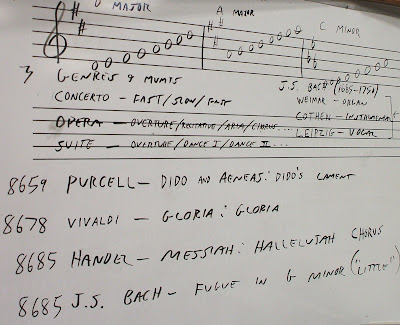 D MAJOR A MAJOR C MINOR
3 GENRES & MVMTS J.S. BACH (1685-1750)
CONCERTO – FAST/SLOW/FAST WEIMAR – ORGAN
OPERA – OVERTURE/RECITATIVE/ARIA/CHORUS... COTHEN – INSTRUMENTAL
SUITE – OVERTURE/DANCE I/DANCE II... LEIPZIG – VOCAL
8659 PURCELL – DIDO AND AENEAS: DIDO'S LAMENT
8678 VIVALDI – GLORIA: GLORIA
8685 HANDEL – MESSIAH: HALLELUJAH CHORUS
8685 J.S. BACH – FUGUE IN G MINOR ("LITTLE")